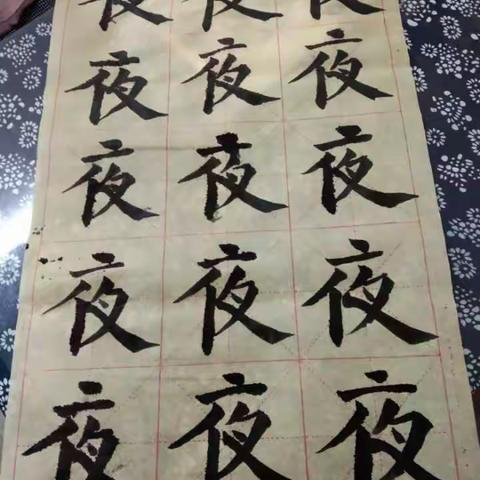 夜 夜 夜
夜 夜 夜
夜 夜 夜
夜 夜 夜
夜 夜 夜